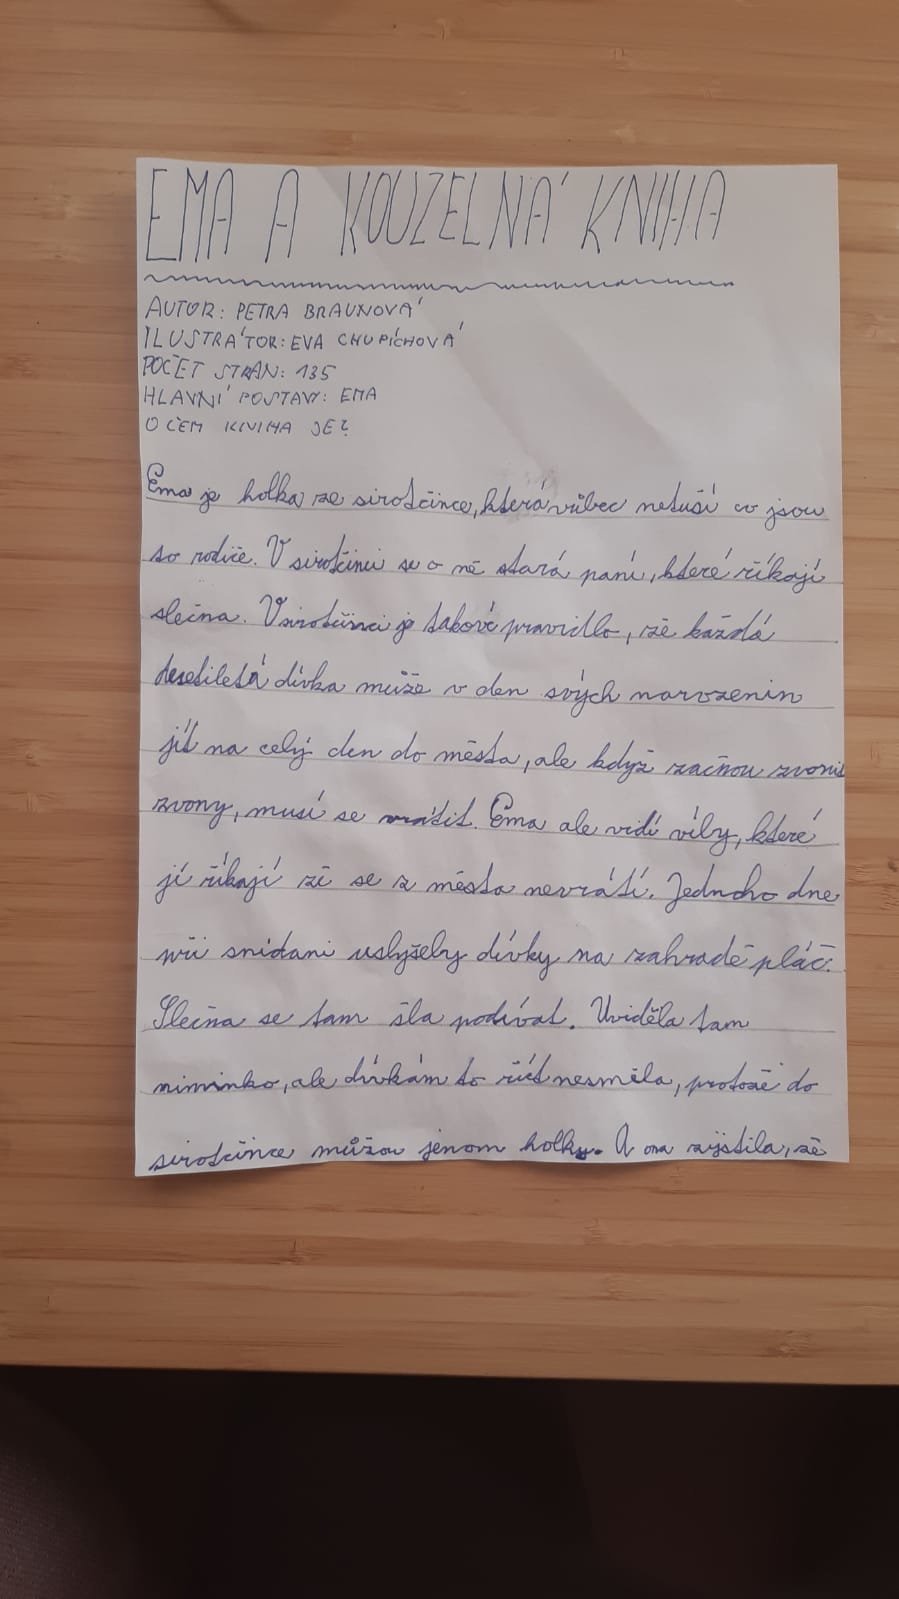 EMA A KOUZELNÁ KNIHA
AUTOR: PETRA BRAUNOVÁ
ILUSTRÁTOR: EVA CHUPÍCHOVÁ
POČET STRAN: 135
HLAVNÍ POSTAVY: EMA
O ČEM KNIHA JE?
Ema je holka ze sirotčince, která vůbec netuší co jsou
to rodiče. V sirotčinci se o ně stará paní, které říkají
slečna. V sirotčinci je takové pravidlo, že každá
desetiletá dívka může v den svých narozenin
jít na celý den do města, ale když začnou zvonit
zvony, musí se vrátit. Ema ale vidí víly, které
jí říkají že se z města nevrátí. Jednoho dne
při snídani uslyšely dívky na zahradě pláč.
Slečna se tam šla podívat. Uviděla tam
miminko, ale dívkám to říct nesměla, protože do
sirotčince můžou jenom holky. A ona zjistila, že